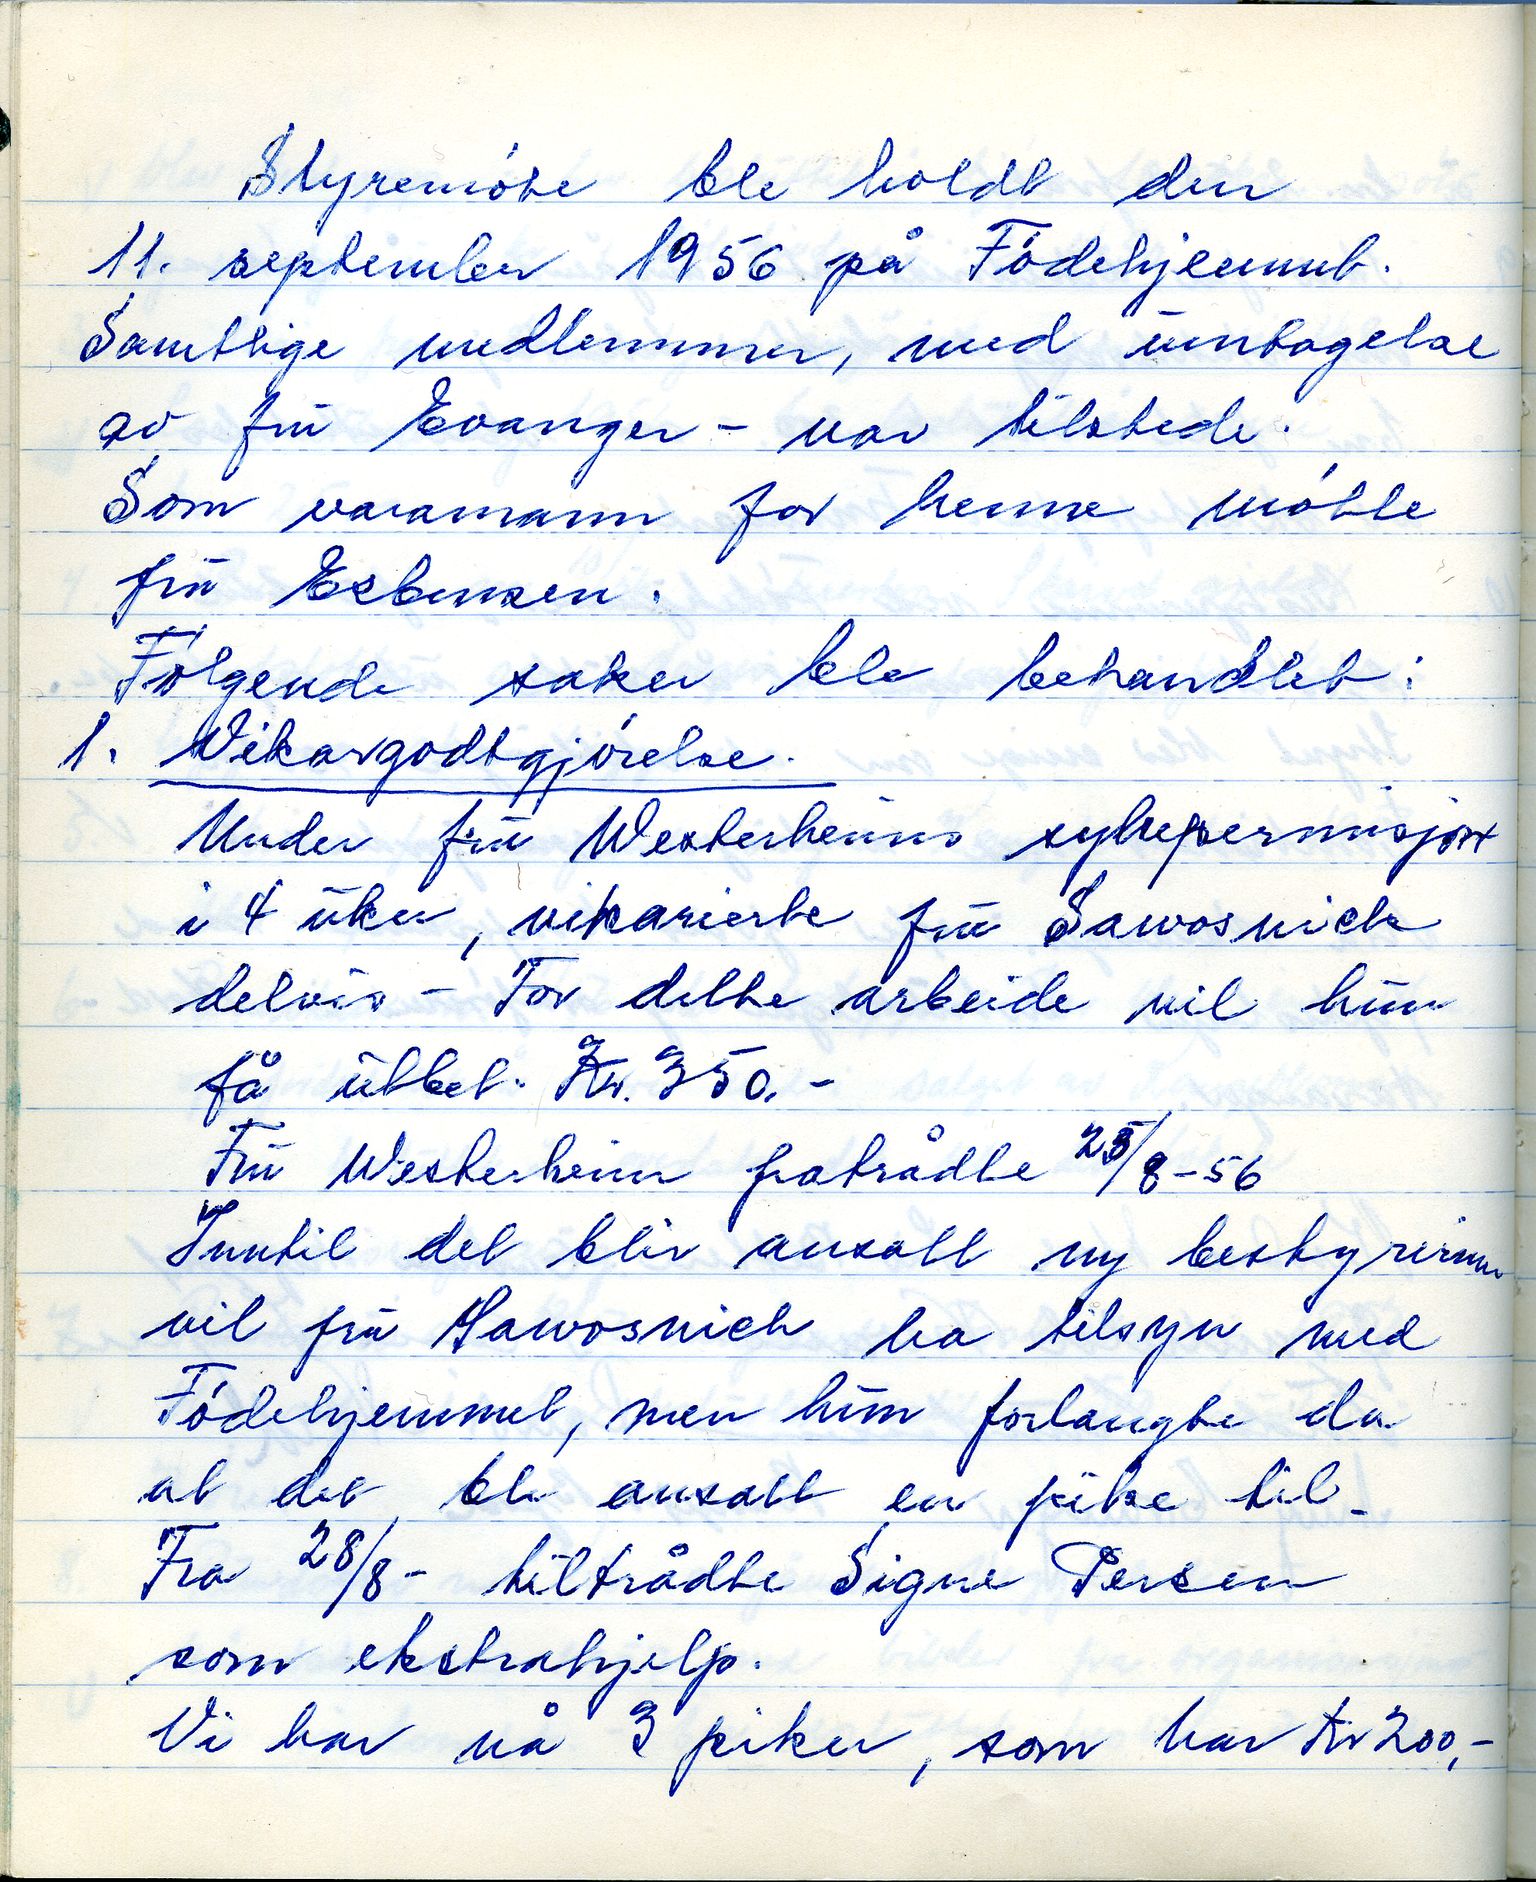 Styremöte ble holdt den
11. september 1956 på Födehjemmet.
Samtlige medlemmer, med unntagelse
av fru Evanger - var tilstede.
Som varamann for henne mötte
fru Esbensen.
Fölgende saker ble behandlet:
1. Vikargodtgjörelse.
Under fru Westerheims sykepermisjon
i 4 uker, vikarierte fru Sawosnick
delvis - For dette arbeide vil hun
få utbet. Kr. 350.-
Fru Westerheim fratrådte 25/8-56
Inntil det blir ansatt ny bestyrerinne
vil fru Sawosnich ha tilsyn med
Födehjemmet, men hun forlangte da
at det ble ansatt en pike til.
Fra 28/8- tiltrådte Signe Persen
som ekstrahjelp.
Vi har nå 3 piker, som har Kr 200,-